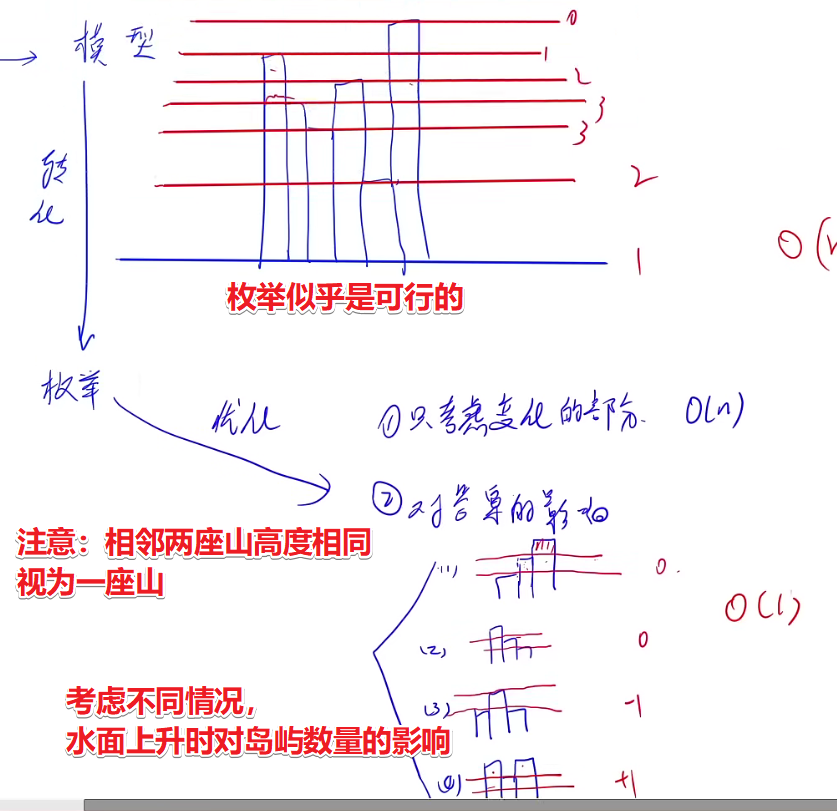 模型
0
1
2
3
3
2
1
转化
O(
枚举似乎是可行的
枚举
优化
①只考虑变化的部分. O(n)
②对答案的影响
注意：相邻两座山高度相同
视为一座山
(1) 0
O(1)
(2) 0
考虑不同情况，
水面上升时对岛屿数量的影响
(3) -1
(4) +1